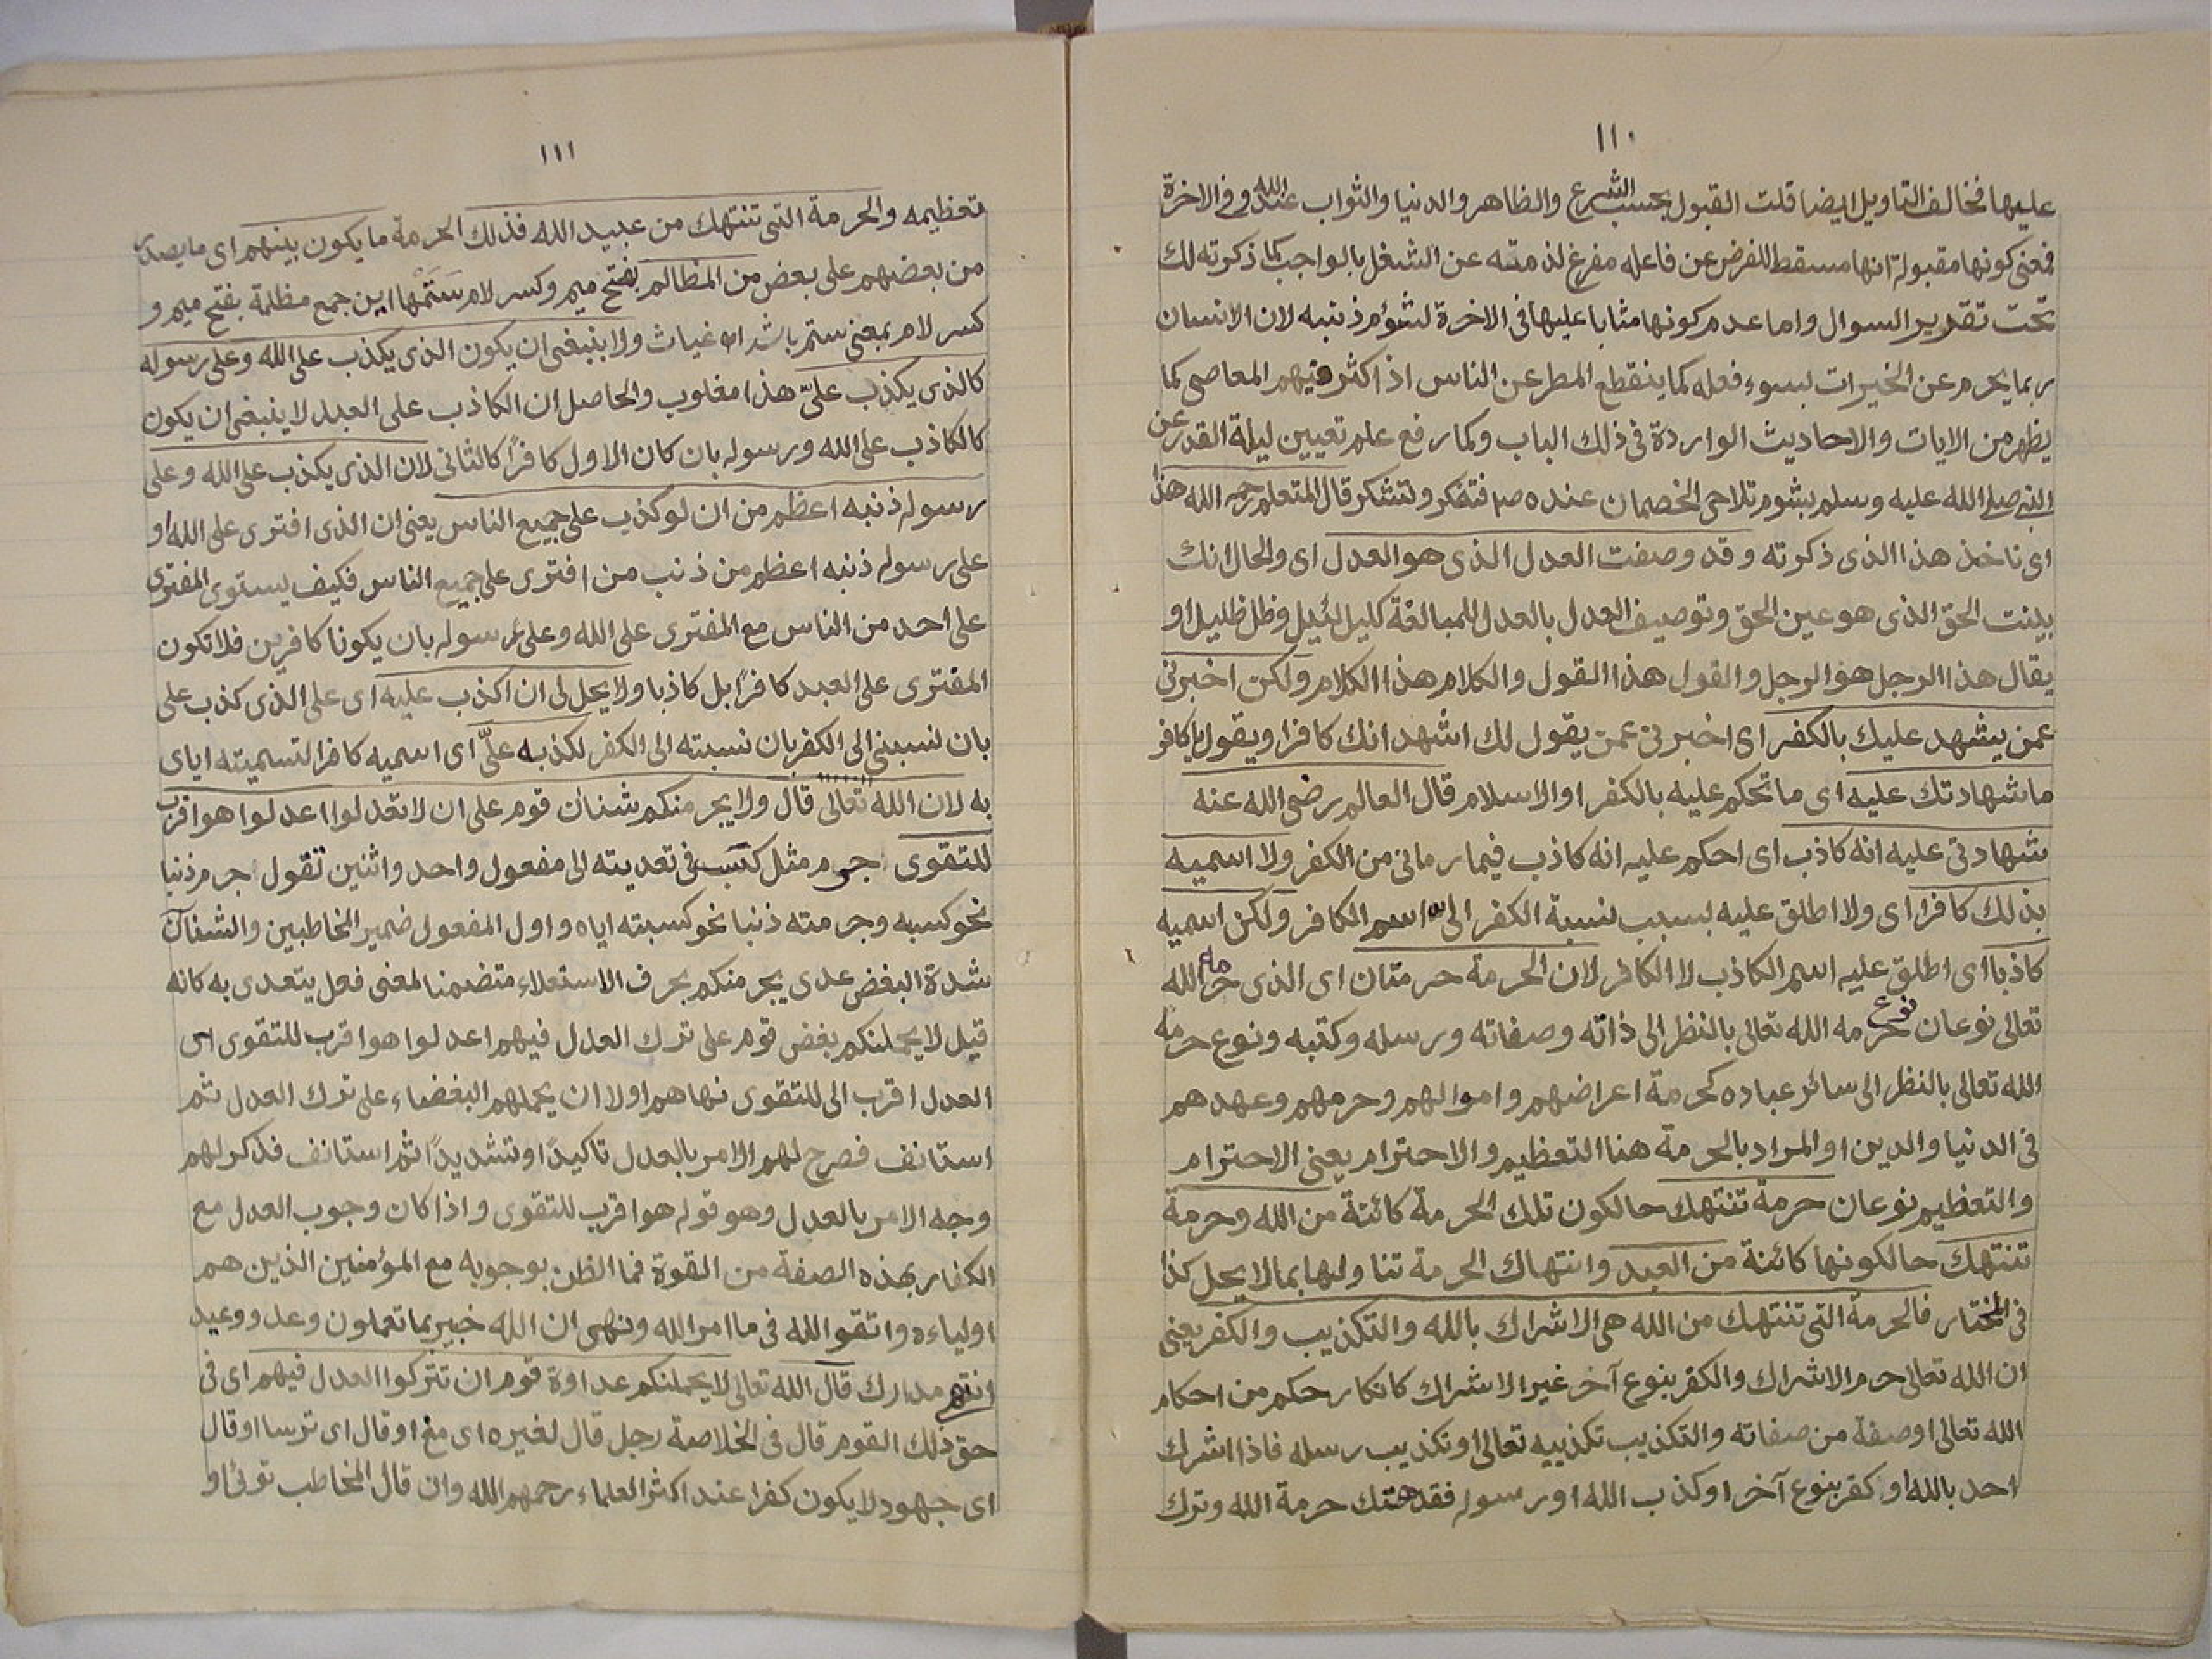 ١١٠
عليها فخالف التاويل ايضا قلت القبول بحسب الشرع والظاهر والدنيا والثواب عند الله وفى الاخرة
فمعنى كونها مقبولة انها مسقط للفرض عن فاعله مفرغ لذمته عن الشغل بالواجب كما ذكرته لك
تحت تقدير السوال واما عدم كونها مثابا عليها فى الاخرة لشؤم ذنبه لان الانسان
ربما يحرم عن الخيرات لسوء فعله كما ينقطع المطر عن الناس اذا كثر فيهم المعاصى كما
يظهر من الايات والاحاديث الواردة فى ذلك الباب وكما رفع علم تعيين ليلة القدر عن
النبى صلى الله عليه وسلم بشوم تلاحى الخصمان عنده صم فتفكر ولتشكر قال المتعلم رحمه الله هذا
اى ناخذ هذا الذى ذكرته وقد وصفت العدل الذى هو العدل اى والحال انك
بينت الحق الذى هو عين الحق وتوصيف العدل بالعدل للمبالغة كليل لئيل وظل ظليل او
يقال هذا الرجل هو الرجل والقول هذا القول والكلام هذا الكلام ولكن اخبرنى
عمن يشهد عليك بالكفر اى اخبرنى عمن يقول لك اشهد انك كافر او يقول يا كافر
ما شهادتك عليه اى ما تحكم عليه بالكفر او الاسلام قال العالم رضى الله عنه
شهادتى عليه انه كاذب اى احكم عليه انه كاذب فيما رمانى من الكفر ولا اسميه
بذلك كافرا اى ولا اطلق عليه بسبب نسبة الكفر الى اسم الكافر ولكن اسميه
كاذبا اى اطلق عليه اسم الكاذب لا الكافر لان الحرمة حرمتان اى الذى حرمه الله
تعالى نوعان نوع حرمه الله تعالى بالنظر الى ذاته وصفاته ورسله وكتبه ونوع حرمه
الله تعالى بالنظر الى سائر عباده كحرمة اعراضهم واموالهم وحرمهم وعهدهم
فى الدنيا والدين او المراد بالحرمة هنا التعظيم والاحترام يعنى الاحترام
والتعظيم نوعان حرمة تنتهك حال كون تلك الحرمة كائنة من الله وحرمة
تنتهك حال كونها كائنة من العبد وانتهاك الحرمة تناولها بما لا يحل كذا
فى المختار فالحرمة التى تنتهك من الله هى الاشراك بالله والتكذيب والكفر يعنى
ان الله تعالى حرم الاشراك والكفر بنوع آخر غير الاشراك كانكار حكم من احكام
الله تعالى او صفة من صفاته والتكذيب تكذيبه تعالى او تكذيب رسله فاذا اشرك
احد بالله او كفر بنوع آخر او كذب الله او رسوله فقد هتك حرمة الله وترك
١١١
تعظيمه والحرمة التى تنتهك من عبيد الله فذلك الحرمة ما يكون بينهم اى ما يصدر
من بعضهم على بعض من المظالم بفتح ميم وكسر لام سَتَمْها اين جمع مظلمة بفتح ميم و
كسر لام بمعنى ستم باشد اه غياث ولا ينبغى ان يكون الذى يكذب على الله وعلى رسوله
كالذى يكذب علىّ هذا مغلوب والحاصل ان الكاذب على العبد لا ينبغى ان يكون
كالكاذب على الله ورسوله بان كان الاول كافرًا كالثانى لان الذى يكذب على الله وعلى
رسوله ذنبه اعظم من ان لو كذب على جميع الناس يعنى ان الذى افترى على الله او
على رسوله ذنبه اعظم من ذنب من افترى على جميع الناس فكيف يستوى المفترى
على احد من الناس مع المفترى على الله وعلى رسوله بان يكونا كافرين فلا تكون
المفترى على العبد كافرًا بل كاذبا ولا يحل لى ان اكذب عليه اى على الذى كذب على
بان نسبنى الى الكفر بان نسبته الى الكفر لكذبه علىّ اى اسميه كافرا لتسميته اياى
به لان الله تعالى قال ولا يجرمنكم شنان قوم على ان لا تعدلوا اعدلوا هو اقرب
للتقوى جرم مثل كسب فى تعديته الى مفعول واحد واثنين تقول جرم ذنبا
نحو كسبه وجرمته ذنبا نحو كسبته اياه واول المفعول ضمير المخاطبين والشنآن
شدة البغض عدى يجرمنكم بحرف الاستعلاء متضمنا لمعنى فعل يتعدى به كانه
قيل لا يحملنكم بغض قوم على ترك العدل فيهم اعدلوا هو اقرب للتقوى اى
العدل اقرب الى للتقوى نهاهم اولا ان يحملهم البغضاء على ترك العدل ثم
استانف فصرح لهم الامر بالعدل تاكيدًا وتشديدًا ثم استانف فذكر لهم
وجه الامر بالعدل وهو قوله هو اقرب للتقوى واذا كان وجوب العدل مع
الكفار بهذه الصفة من القوة فما الظن بوجوبه مع المؤمنين الذين هم
اولياءه واتقوا الله فى ما امر الله ونهى ان الله خبير بما تعملون وعد ووعيد
انتهى مدارك قال الله تعالى لا يحملنكم عداوة قوم ان تتركوا العدل فيهم اى فى
حق ذلك القوم قال فى الخلاصة رجل قال لغيره اى مغ او قال اى ترسا او قال
اى جهود لا يكون كفرا عند اكثر العلماء رحمهم الله وان قال المخاطب توئى او